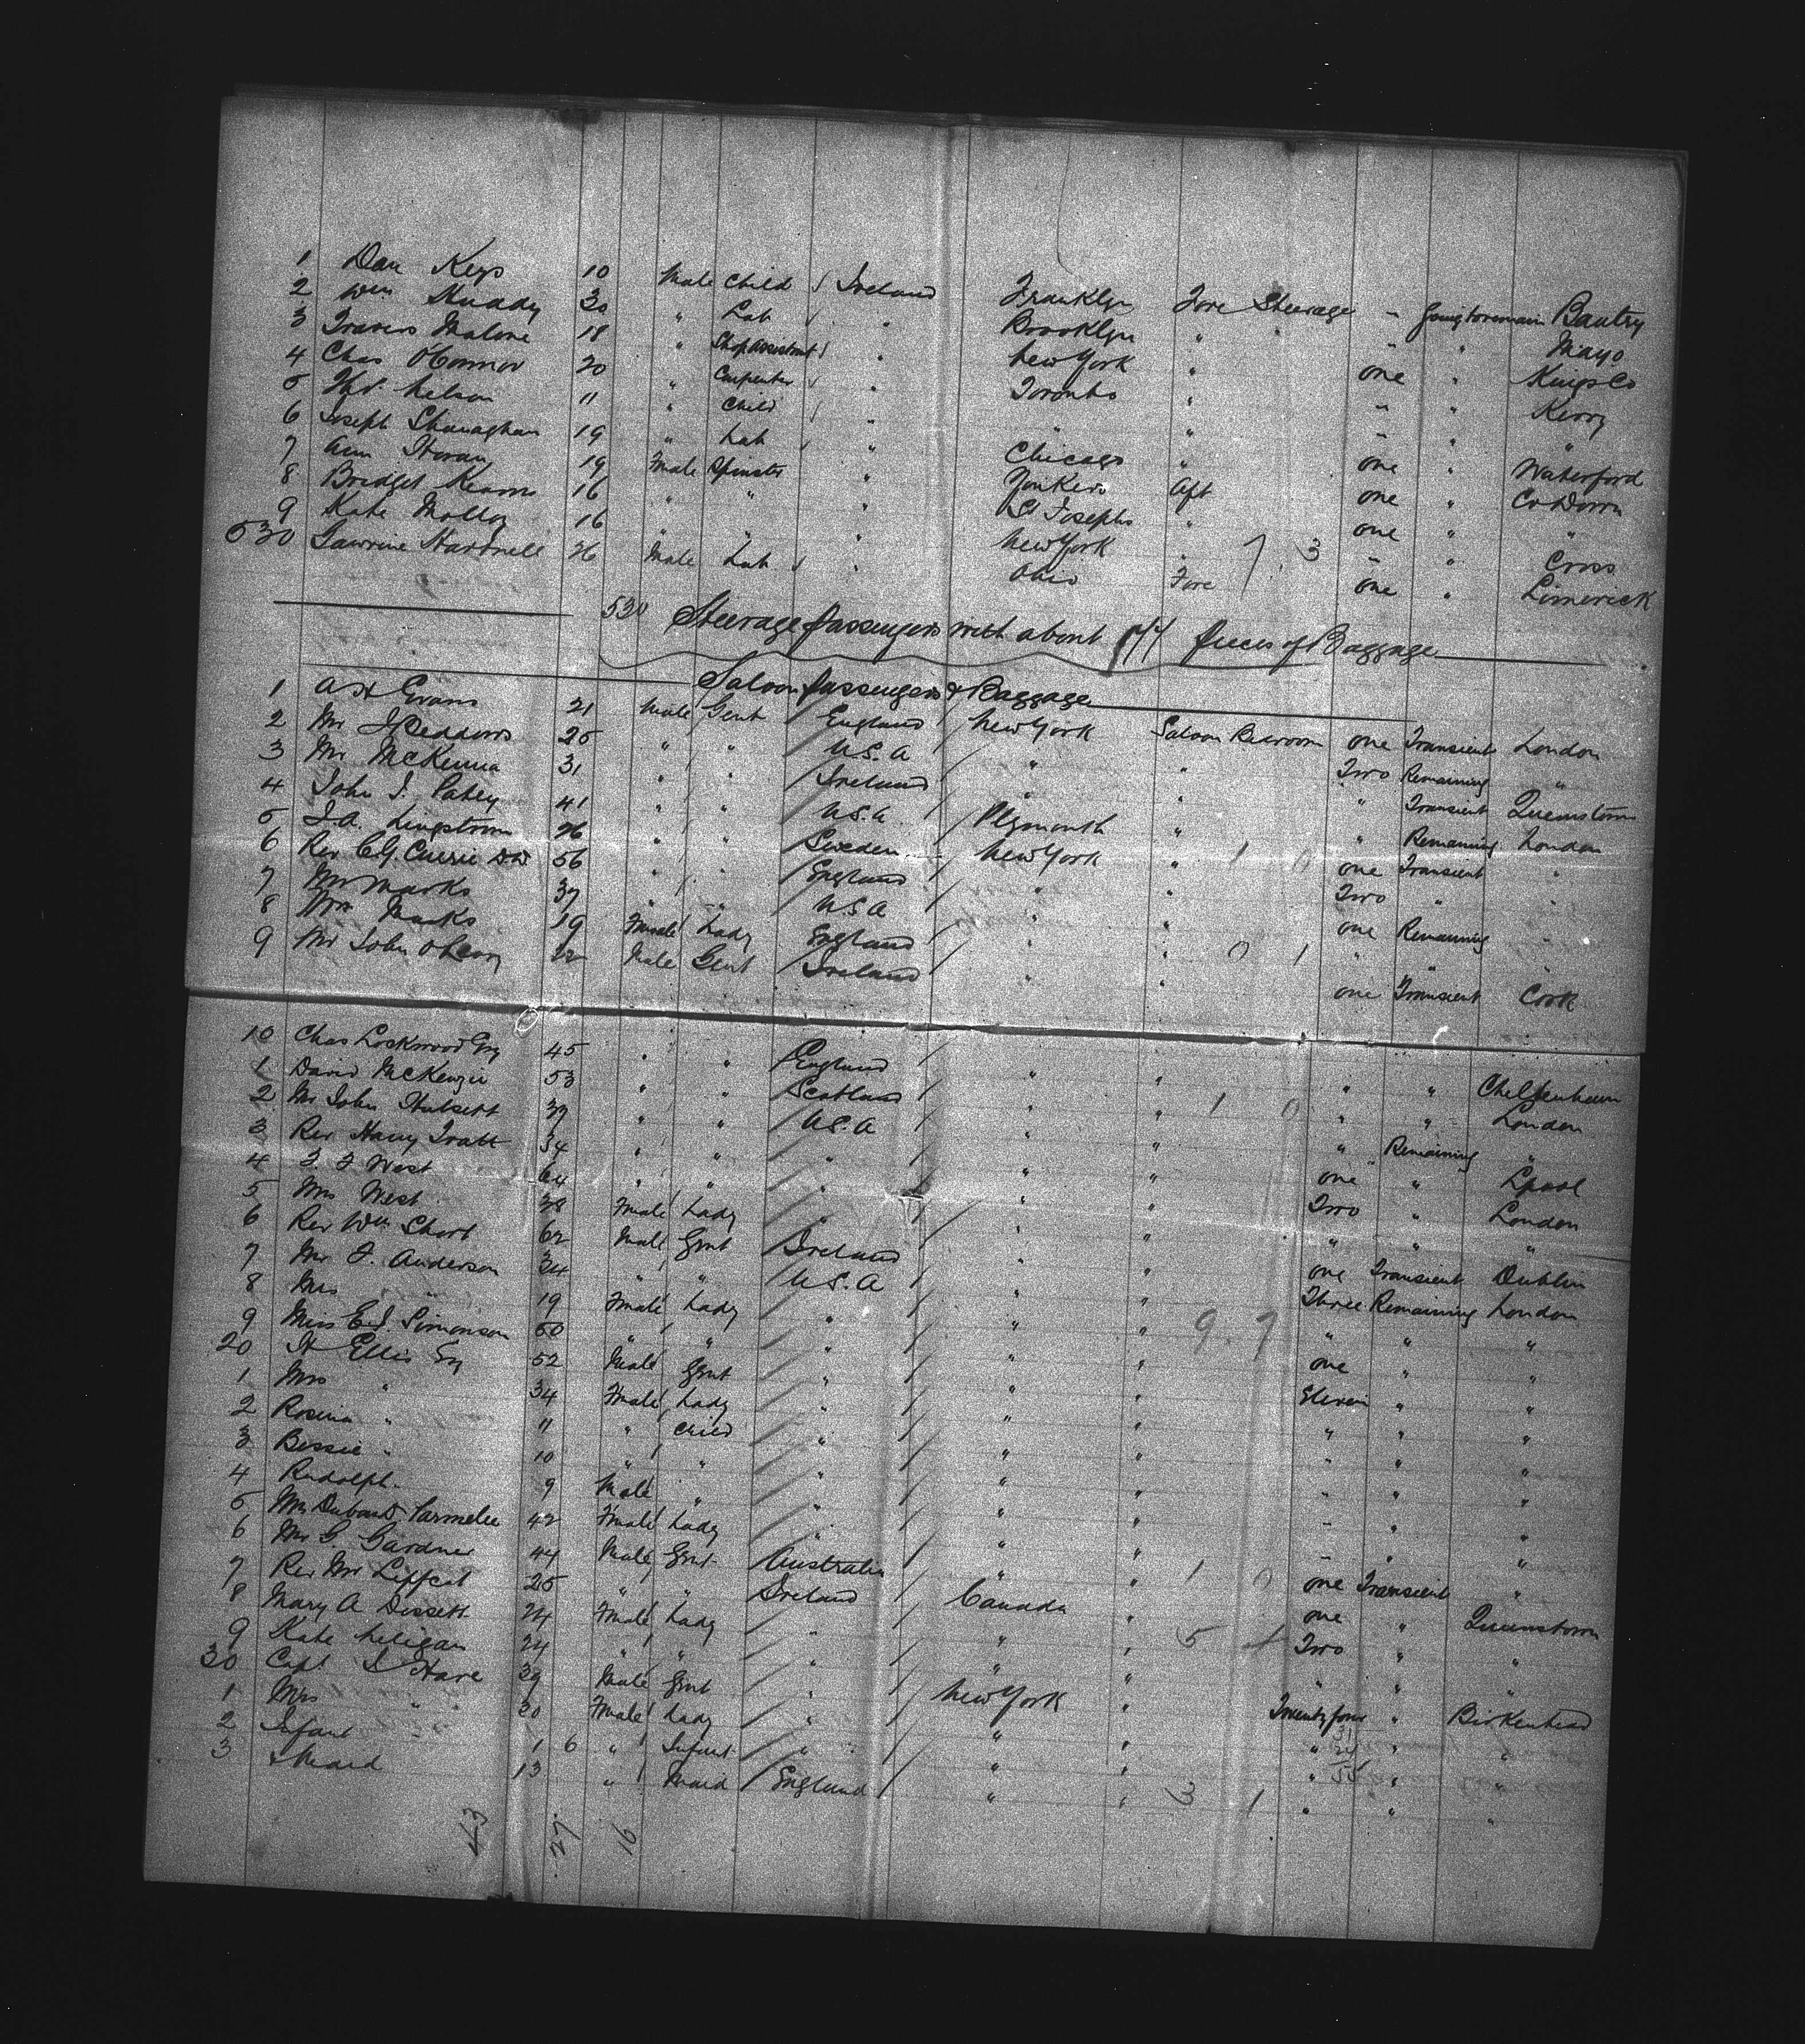 1 Dan Keys 10 Male Child Ireland Franklyn Fore Steerage - Going to remain Bantry
2 Wm Muddy 30 " Lab " Brooklyn " " - " Mayo
3 Travers Malone 18 " Shop assistant " New York " one " Kings Co
4 Chas O'Connor 20 " Carpenter " Toronto " - " Kerry
5 Thos. Nelson 11 " Child " " " - " "
6 Joseph Shanaghan 19 " Lab " Chicago " one " Waterford
7 Ann Horan 19 Fmale Spinster " Yonkers Aft one " Co Down
8 Bridget Kearns 16 " " " St Josephs " one " "
9 Kate Molloy 16 " " " New York " - " Cross
530 Lawrine Hartnell 26 Male Lab " Ohio Fore 7. 3 one " Limerick
530 Steerage passengers with about Pieces of Baggage
Saloon passengers & Baggage
1 A H Evans 21 Male Gent England New York Saloon Bedroom one Transient London
2 Mr J Peddows 25 " " U.S.A " " Two Remaining "
3 Mr McKenna 31 " " Ireland " " " Transient Queenstown
4 John J. Pahey 41 " " U.S.A. Plymouth " " Remaining London
5 J.A. Lingstrom 26 " " Sweden New York " 1 0 one Transient "
6 Rev C.G. Currie DD 56 " " England " " Two " "
7 Mr Marks 37 " " U.S.A " " one Remaining "
8 Mrs Marks 19 Fmale Lady England " " 0 1 " " "
9 Mr John O'Leary 22 Male Gent Ireland " " one Transient Cork
10 Chas Lockwood Esq 45 " " England " " " " Cheltenham
1 David McKenzie 53 " " Scotland " " 1 0 " " London
2 Mr John Hulsett 39 " " U.S.A " " " Remaining "
3 Rev Harry Tratt 34 " " " " " one " Lpool
4 J. J West 64 " " " " " Two " London
5 Mrs West 38 Fmale Lady " " " " " "
6 Rev Wm Short 62 Male Gent Ireland " " one Transient Dublin
7 Mr J. Anderson 34 " " U.S.A " " Three Remaining London
8 Mrs " 19 Fmale Lady " " " 9. 7 " " "
9 Miss E.J. Simonson 50 " " " " " one " "
20 H Ellis Esq 52 Male Gent " " " Eleven " "
1 Mrs " 34 Fmale Lady " " " " " "
2 Rosina " 11 " Child " " " " " "
3 Bessie " 10 " " " " " " " "
4 Rudolph 9 Male " " " " - " "
5 Mrs Dubois Parmelee 42 Fmale Lady " " " - " "
6 Mr G. Gardner 44 Male Gent Australia " " 1 0 one Transient "
7 Rev Mr Liffcot 25 " " Ireland Canada " one " Queenstown
8 Mary A Dissett 24 Fmale Lady " " " 5 4 Two " "
9 Kate Neligan 24 " " " " " " " "
30 Capt J Hare 39 Male Gent " New York " Twenty four " Birkenhead
1 Mrs " 30 Fmale Lady " " " " 31 " "
2 Infant 1 6 " Infant " " " " 24 " "
55
3 & Maid 13 " Maid England " " 3 1 " " "
43 27 16